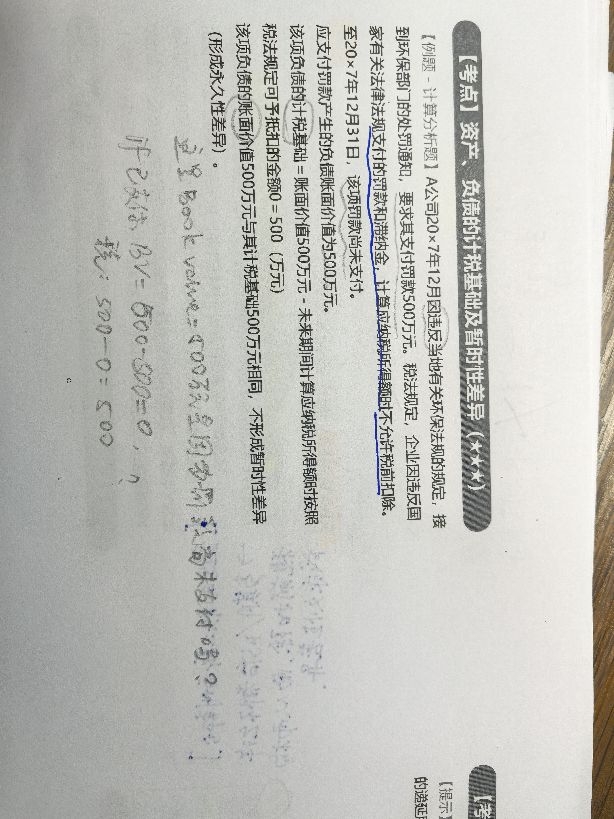 【考点】资产、负债的计税基础及暂时性差异（★★★）
【例题-计算分析题】A公司20×7年12月因违反当地有关环保法规的规定，接
到环保部门的处罚通知，要求其支付罚款500万元。税法规定，企业因违反国
家有关法律法规支付的罚款和滞纳金，计算应纳税所得额时不允许税前扣除。
至20×7年12月31日，该项罚款尚未支付。
应支付罚款产生的负债账面价值为500万元。
该项负债的计税基础=账面价值500万元-未来期间计算应纳税所得额时按照
税法规定可予抵扣的金额0=500（万元）
该项负债的账面价值500万元与其计税基础500万元相同，不形成暂时性差异
（形成永久性差异）。
这里Book value=500万元是因为罚款尚未支付吗？
若已支付，BV=500-500=0，
税：500-0=500
【考
【提示】
的递延